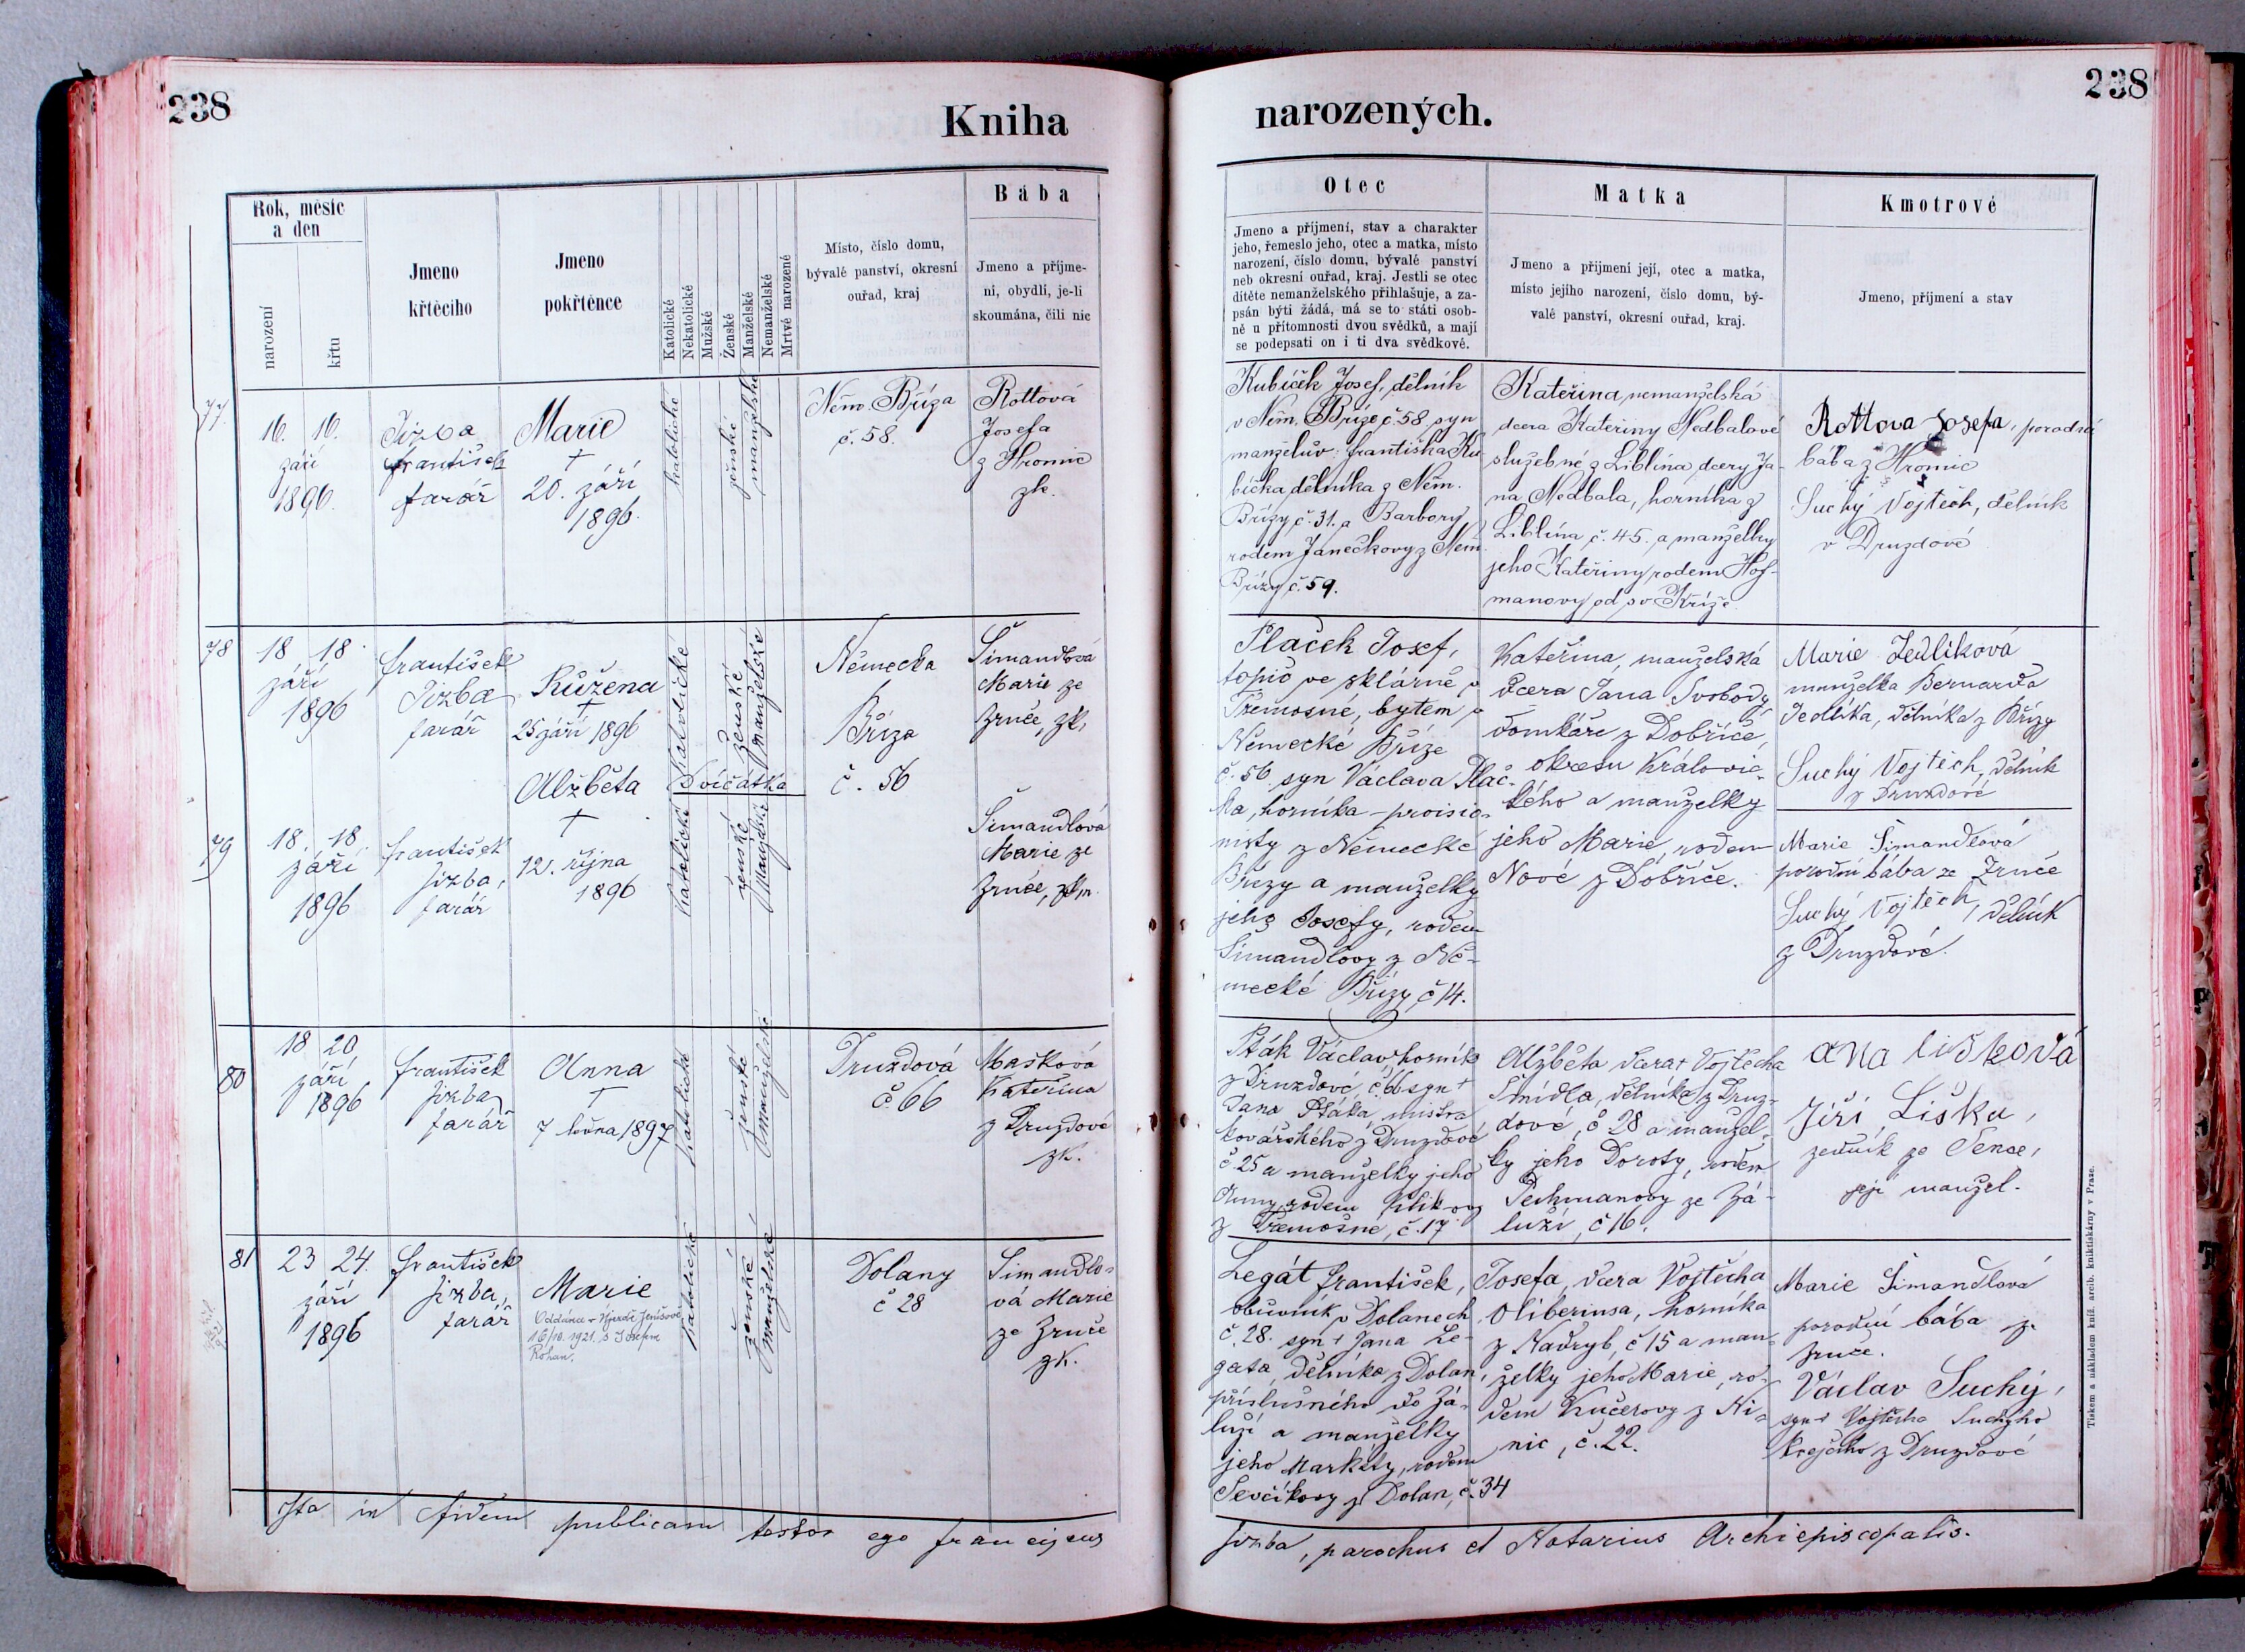 238
Kniha
Rok, měsíc
a den
narození
křtu
Jmeno
křtěcího
Jmeno
pokřtěnce
Katolické
Nekatolické
Mužské
Ženské
Manželské
Nemanželské
Mrtvé narozené
Místo, číslo domu,
bývalé panství, okresní
ouřad, kraj
Bába
Jmeno a příjme-
ní, obydlí, je-li
skoumána, čili nic
77
16. 16.
září
1896
Jizba
František
farář
Marie
†
20. září
1896.
katolické
ženské
manželské
Něm. Bříza
č. 58.
Rottová
Josefa
z Hromic
zk.
78
18 18
září
1896
František
Jizba
farář
Růžena
†
25 září 1896
Katolické
ženské
manželské
Německa
Bříza
č. 56
Šimandlová
Marie ze
Zruče, zk,
Alžběta
Dvíčátka
†
79
18. 18.
září
1896
František
Jizba,
farář
12. října
1896
katolické
ženské
manželské
Šimandlová
Marie ze
Zruče, zk.
80
18 20
září
1896
František
Jizba
farář
Anna
†
7 1897
katolické
ženské
manželské
Druzdová
č. 66
Mašková
Kateřina
z Druzdové
zk.
81
23 24.
září
1896
František
Jizba,
farář
Marie
Oddána v Jenišově
16/10. 1921. s Josefem
Rohan.
katolické
ženské
manželské
Dolany
č 28
Šimandlo-
vá Marie
ze Zruče
zk.
Ita in fidem publicam testor ego Franciscus
238
narozených.
Otec
Jmeno a příjmení, stav a charakter
jeho, řemeslo jeho, otec a matka, místo
narození, číslo domu, bývalé panství
neb okresní ouřad, kraj. Jestli se otec
dítěte nemanželského přihlašuje, a za-
psán býti žádá, má se to státi osob-
ně u přítomnosti dvou svědků, a mají
se podepsati on i ti dva svědkové.
Matka
Jmeno a příjmení její, otec a matka,
místo jejího narození, číslo domu, bý-
valé panství, okresní ouřad, kraj.
Kmotrové
Jmeno, příjmení a stav
Kubíček Josef, dělník
v Něm. Bříze č. 58 syn
manželův Františka Ku-
bíčka dělníka z Něm.
Břízy č. 31. a Barbory
rodem Janečkovy z Něm.
Břízy č. 59.
Kateřina, nemanželská
dcera Kateřiny Nedbalové
služebné z Liblína dcery Ja-
na Nedbala, horníka z
Liblína č. 45. a manželky
jeho Kateřiny rodem Hof-
manovy od sv Kříže.
Rottova Josefa, porodní
bába z Hromic
Suchý Vojtěch, dělník
v Druzdové
Plaček Josef,
topič ve sklárně v
Třemošné, bytem v
Německé Bříze
č. 56 syn Václava Plač-
ka, horníka - provisio-
nisty z Německé
Břízy a manželky
jeho Josefy, rodem
Šimandlovy z Ně-
mecké Břízy č 14.
Kateřina, manželská
dcera Jana Svobody
domkáře z Dobříče,
okresu Královic-
kého a manželky
jeho Marie, rodem
Nové z Dobříče.
Marie Jedliková
manželka Bernarda
Jedlíka, dělníka z Břízy
Suchý Vojtěch, dělník
z Druzdové
Marie Šimandlová
porodní bába ze Zruče
Suchý Vojtěch, dělník
z Druzdové.
Pták Václav, horník
z Druzdové, č. 66 syn †
Jana Ptáka, mistra
kovářského z Druzdové
č 25 a manželky jeho
Anny, rodem
z Třemošné, č. 17
Alžběta dcera † Vojtěcha
Šnídla, dělníka z Druz-
dové, č 28 a manžel-
ky jeho Doroty, rodem
Pechmanovy ze Zá-
luží, č 16.
ana lišková
Jiří Liška,
zedník ze Senec,
její manžel.
Legát František,
obuvník v Dolanech
č. 28. syn † Jana Le-
gata, dělníka z Dolan,
příslušného do Zá-
luží a manželky
jeho Markéty, rodem
Ševčíkovy z Dolan, č. 34
Josefa, dcera Vojtěcha
Oliberiusa, horníka
z Nadryb, č 15 a man-
želky jeho Marie, ro-
dem Kučerovy z Ni-
nic, č. 22.
Marie Šimandlová
porodní bába ze
Zruče.
Václav Suchý,
syn † Vojtěcha Suchýho
krejčího z Druzdové
Jizba, parochus et Notarius Archiepiscopalis.
Tiskem a nákladem kníž. arcib. knihtiskárny v Praze.